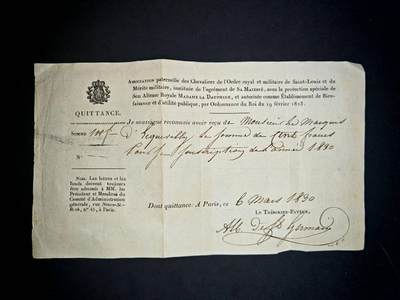 Association paternelle des Chevaliers de l'Ordre royal et militaire de Saint-Louis et du
Mérite militaire, instituée de l'agrément de Sa Majesté, sous la protection spéciale de
Son Altesse Royale Madame la Dauphine, et autorisée comme Établissement de Bien-
faisance et d'utilité publique, par Ordonnance du Roi du 19 février
QUITTANCE.
Je soussigné reconnais avoir reçu de Monsieur le Marquis
Somme 100 f
D' la somme de Cent francs
N.°
Pour sa souscription de l'année 1830
Nota. Les lettres et les
fonds doivent toujours
être adressés à MM. les
Président et Membres du
Comité d'Administration
générale, rue
n.° à Paris.
Dont quittance: A Paris, ce 6 Mars 1830
Le Trésorier-Payeur,
St Germain